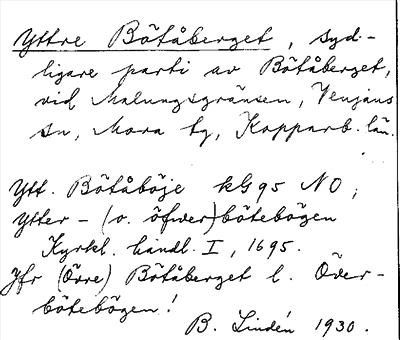 Yttre Bötåberget, syd-
ligare parti av Bötåberget,
vid Malungsgränsen, Venjans
sn, Mora tg, Kopparb. län.
Ytt. Bötåböje kG95 NO;
Ytter-(o. öfwer)bötebögen
Kyrkl. handl. I, 1695.
Jfr (Övre) Bötåberget l. Över-
bötebögen!
B. Lindén 1930.